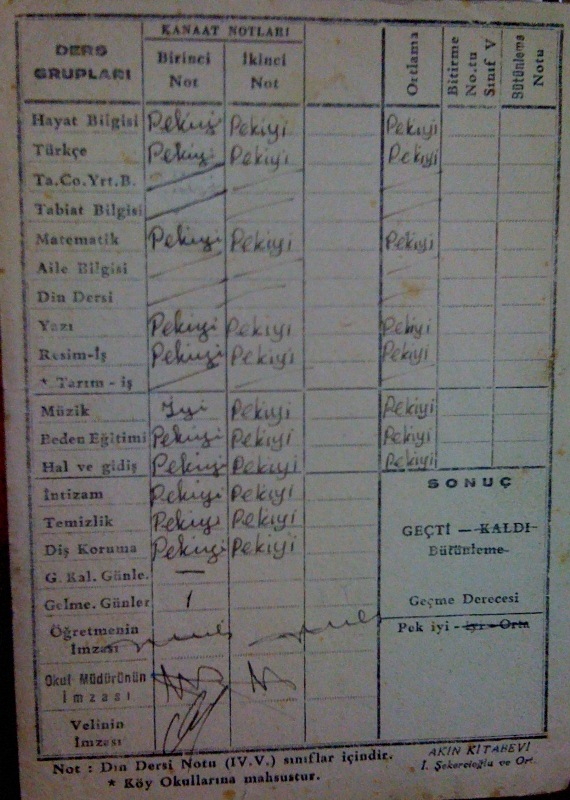 DERS GRUPLARI KANAAT NOTLARI Ortlama Bitirme No.tu Sınıf V Bütünleme Notu
Birinci Not İkinci Not
Hayat Bilgisi Pekiyi Pekiyi Pekiyi
Türkçe Pekiyi Pekiyi Pekiyi
Ta.Co.Yrt.B.
Tabiat Bilgisi
Matematik Pekiyi Pekiyi Pekiyi
Aile Bilgisi
Din Dersi
Yazı Pekiyi Pekiyi Pekiyi
Resim-İş Pekiyi Pekiyi Pekiyi
* Tarım - iş
Müzik İyi Pekiyi Pekiyi
Beden Eğitimi Pekiyi Pekiyi Pekiyi
Hal ve gidiş Pekiyi Pekiyi Pekiyi
İntizam Pekiyi Pekiyi
Temizlik Pekiyi Pekiyi
Diş Koruma Pekiyi Pekiyi
G. Kal. Günle. —
Gelme. Günler 1
Öğretmenin İmzası
Okul Müdürünün İmzası
Velinin İmzesi
SONUÇ
GEÇTİ — KALDI
Bütünleme
Geçme Derecesi
Pek iyi - iyi - Orta
Not : Din Dersi Notu (IV.V.) sınıflar içindir.
* Köy Okullarına mahsustur.
AKIN KİTABEVİ
İ. Şekercioğlu ve Ort.